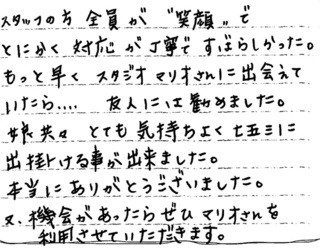 スタッフの方 全員が "笑顔" で
とにかく 対応が丁寧ですばらしかった。
もっと早く スタジオマリオさんに出会えて
いたら.... 友人には勧めました。
娘共々 とても気持ちよく七五三に
出掛ける事が出来ました。
本当にありがとうございました。
又、機会があったらぜひ マリオさんを
利用させていただきます。